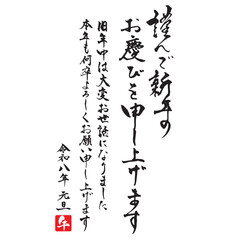 謹んで新年の
お慶びを申し上げます
旧年中は大変お世話になりました
本年も何卒よろしくお願い申し上げます
令和八年 元旦
午